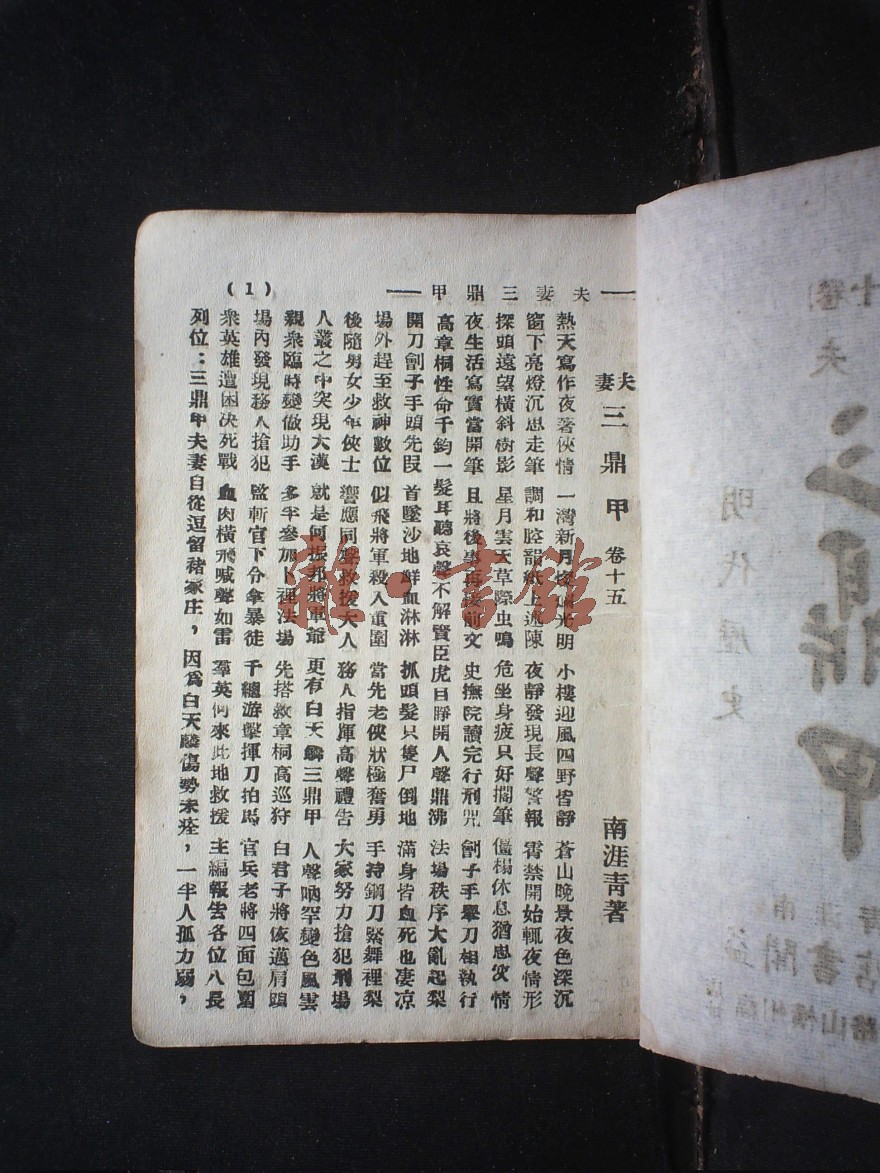 夫妻三鼎甲
(1)
夫妻三鼎甲 卷十五 南涯青著
熱天寫作夜著俠情 一灣新月 光明 小樓迎風四野皆靜 蒼山晚景夜色深沉
窗下亮燈沉思走筆 調和腔韻紙上述陳 夜靜發現長聲警報 霄禁開始輒夜情形
探頭遠望橫斜樹影 星月雲天草際虫鳴 危坐身疲只好擱筆 僵楊休息猶思 情
夜生活寫實當開筆 且將後事再接前文 史撫院讀完行刑咒 劊子手舉刀相執行
高章桐性命千鈞一髮 耳聽哀聲不解賢臣 虎目睜開人聲鼎沸 法場秩序大亂起梨
開刀劊子手頭先段 首墜沙地鮮血淋淋 抓頭髮只隻尸倒地 滿身皆血死也凄凉
場外趕至救神數位 似飛將軍殺入重圍 當先老俠狀極奮勇 手持鋼刀緊舞裡梨
後隨男女少年俠士 響應同聲救援大人 務人指揮高聲禮告 大家努力搶犯刑場
人叢之中突現大漢 就是何振邦將軍爺 更有白天麟三鼎甲 人聲吶罕變色風雲
親衆臨時變做助手 多半參加卜裡法場 先搭救章桐高巡狩 白君子將依邁肩
場內發現務人搶犯 監斬官下令拿暴徒 千總游擊揮刀拍馬 官兵老將四面包圍
衆英雄遭困决死戰 血肉橫飛喊聲如雷 羣英何來此地救援 主編報告各位八長
列位：三鼎甲夫妻自從逗留禇家庄，因爲白天麟傷勢未痊，一半人孤力弱，
十卷
夫
三鼎甲
明代歷史
青
書
山橫州
雜·書館